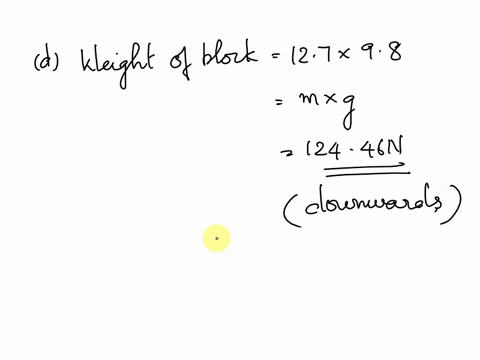 (d) Weight of block = 12.7 × 9.8
= m × g
= 124.46N
(downwards)